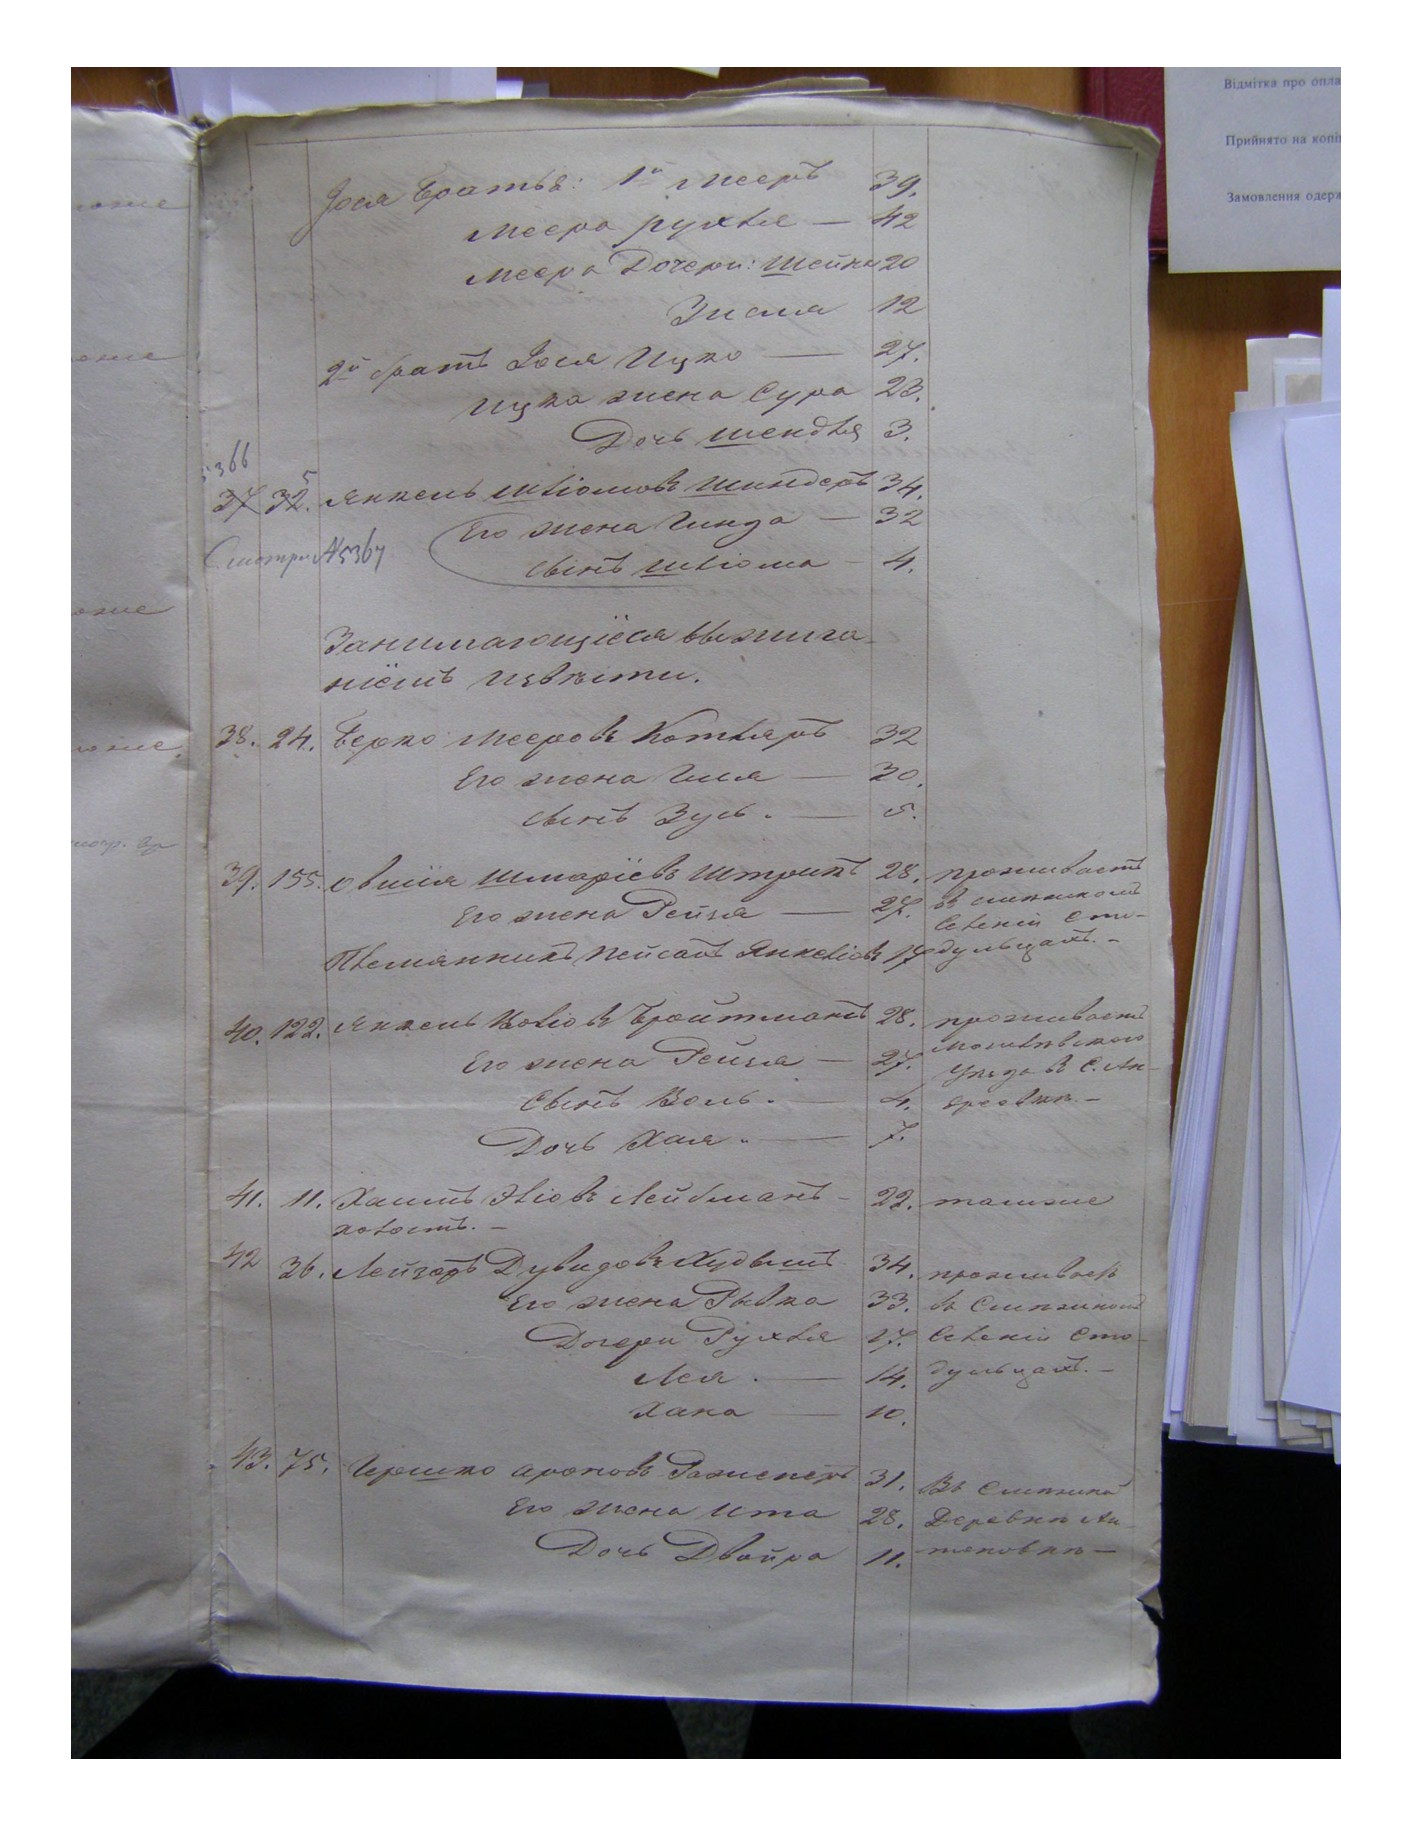 Відмітка про опла
Прийнято на копі
Замовлення одерж
Іося братья: 1й Мееръ 39.
Меера Рухля — 42
Меера Дочери: Шейна 20
Зисля 12
2й братъ Іося Ицко — 27.
Ицка жена Сура 23.
Дочь Шендля 3.
5366
37 32. Янкель Шліомовъ Шиндеръ 34.
Его жена Гинда — 32
Смотри №5367
Сынъ Шліома — 4.
Занимающіеся выжига-
ніемъ извѣсти.
38. 24. Берко Мееровъ Котляръ 32
Его жена Гися — 30.
Сынъ Зусь. — 5.
39. 155. Овшія Шмаріевъ Штрикъ 28. проживаетъ
Его жена Рейзя — 27. въ
Селеніи Сто-
Племянникъ Пейсахъ Янкеліовъ 17 дульцахъ. —
40. 122. Янкель Воліовъ Бройтманъ 28. проживаетъ
Могилевского
Его жена Рейзя — 27. Уѣзда въ С.
Сынъ Воль. — 4.
Дочь Хая. — 7.
41. 11. Хаимъ Эліовъ Лейбманъ — 22. также
холостъ. —
42 36. Лейзоръ Дувидовъ Худымъ 34. проживаетъ
Его жена Рывка 33. въ
Дочери Рухля 17. Селеніи Сто-
Лея. — 14. дульцахъ. —
Хана — 10.
43. 75. Гершко Ароновъ 31. Въ
Его жена Ита 28. Деревнѣ Ан-
Дочь Двойра 11. тоновкѣ —